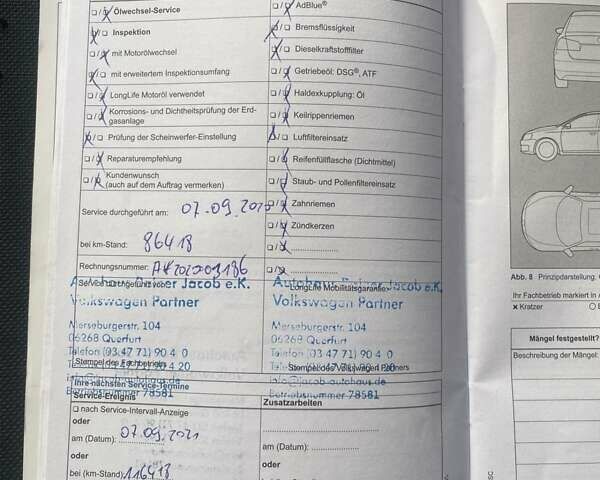 ❏ / ❏ Ölwechsel-Service
❏ / ❏ Inspektion
❏ / ❏ mit Motorölwechsel
❏ / ❏ mit erweitertem Inspektionsumfang
❏ / ❏ LongLife Motoröl verwendet
❏ / ❏ Korrosions- und Dichtheitsprüfung der Erd-
gasanlage
❏ / ❏ Prüfung der Scheinwerfer-Einstellung
❏ / ❏ Reparaturempfehlung
❏ / ❏ Kundenwunsch
(auch auf dem Auftrag vermerken)
Service durchgeführt am: 07.09.2020
bei km-Stand: 86418
Rechnungsnummer:
Service durchgeführt von:
Autohaus Rainer Jacob e.K.
Volkswagen Partner
Merseburgerstr. 104
06268 Querfurt
Telefon (03 47 71) 90 4 0
Stempel des Fachbetriebs
90 4 20
info@jacob-autohaus.de
Betriebsnummer 78581
❏ / ❏ AdBlue®
❏ / ❏ Bremsflüssigkeit
❏ / ❏ Dieselkraftstofffilter
❏ / ❏ Getriebeöl: DSG®, ATF
❏ / ❏ Haldexkupplung: Öl
❏ / ❏ Keilrippenriemen
❏ / ❏ Luftfiltereinsatz
❏ / ❏ Reifenfüllflasche (Dichtmittel)
❏ / ❏ Staub- und Pollenfiltereinsatz
❏ / ❏ Zahnriemen
❏ / ❏ Zündkerzen
❏ / ❏ ....................
❏ / ❏ ....................
LongLife Mobilitätsgarantie
Autohaus Rainer Jacob e.K.
Volkswagen Partner
Merseburgerstr. 104
06268 Querfurt
Telefon (03 47 71) 90 4 0
Stempel des Volkswagen Partners
90 4 20
info@jacob-autohaus.de
Betriebsnummer 78581
Ihre nächsten Service-Termine
Service-Ereignis
❏ nach Service-Intervall-Anzeige
oder
am (Datum): 07.09.2021
oder
bei (km-Stand): 116418
Zusatzarbeiten
am (Datum): ....................
oder
bei (km-Stand): ....................
Abb. 8 Prinzipdarstellung:
Ihr Fachbetrieb markiert in A
x Kratzer
Mängel festgestellt?
Beschreibung der Mängel: